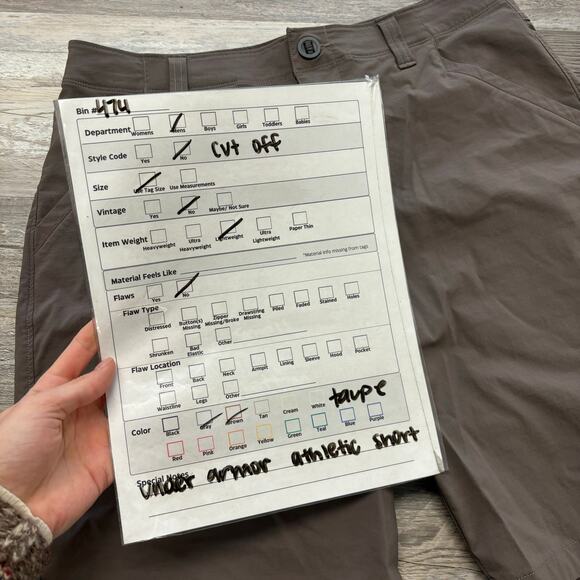 Bin # 474
Department Womens Mens Boys Girls Toddlers Babies
Style Code Yes No cut off
Size Use Tag Size Use Measurements
Vintage Yes No Maybe/ Not Sure
Item Weight Heavyweight Ultra Heavyweight Lightweight Ultra Lightweight Paper Thin
Material Feels Like *Material info missing from tags
Flaws Yes No
Flaw Type Distressed Button(s) Missing Zipper Missing/Broke Drawstring Missing Piled Faded Stained Holes
Shrunken Bad Elastic Other
Flaw Location Front Back Neck Armpit Lining Sleeve Hood Pocket
Waistline Legs Other
taupe
Color Black Gray Brown Tan Cream White Blue Purple
Red Pink Orange Yellow Green Teal
Special Notes
under armor athletic short